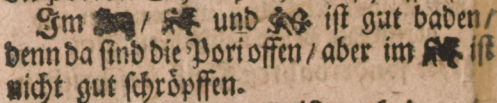 Im / und ist gut baden /
denn da sind die Pori offen / aber im ist
nicht gut schröpffen.